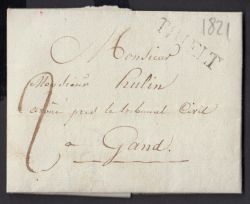 1821
THIELT
Monsieur
Monsieur hulin
avoué près le tribunal Civil
a
Gand.